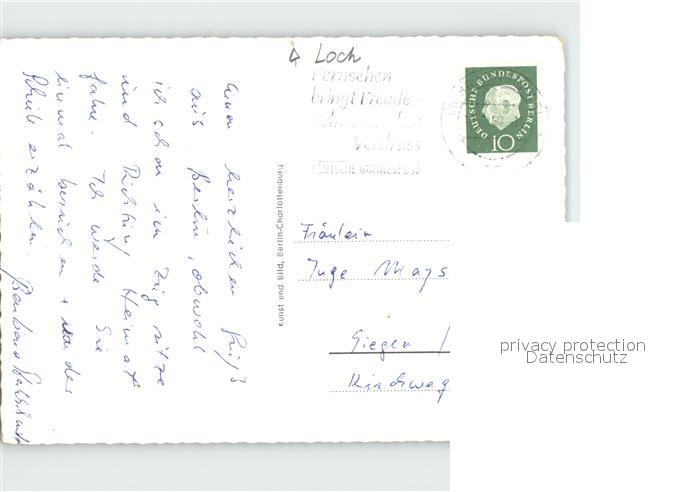 Einen herzlichen Gruß
aus Berlin, obwohl
ich schon im Zug sitze
und Richtung Heimat
fahre. Ich werde Sie
einmal besuchen + von der
Schule erzählen. Barbara
Kunst und Bild, Berlin-Charlottenburg
Loch
Fernsehen
bringt Freude
Verdruss
DEUTSCHE BUNDESPOST
DEUTSCHE BUNDESPOST BERLIN
10
Fräulein
Inge Mays
Giegen /
Kirchweg
privacy protection
Datenschutz